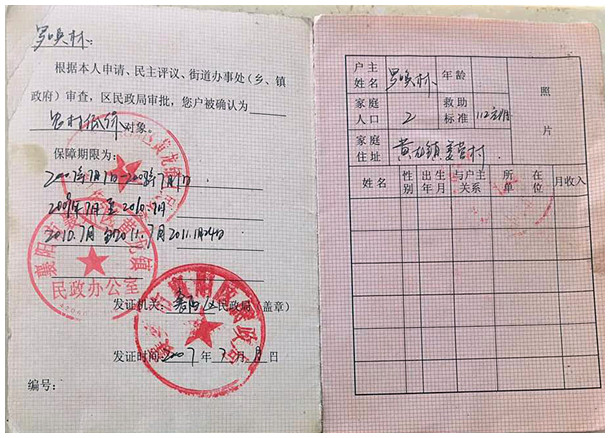 罗焕林:
根据本人申请、民主评议、街道办事处(乡、镇
政府)审查,区民政局审批,您户被确认为
农村低保对象。
保障期限为:
2007年7月1日-2008年7月1日
2009年7月至2010.7月
2010.7月至2011.7月 2011.
襄阳 黄龙镇
民政办公室
发证机关: 襄阳区民政局(盖章)
襄阳区民政局
发证时间: 2007年7月 日
编号:
户主
姓名
罗焕林
年龄
照
片
家庭
人口
2
救助
标准
112元/月
家庭
住址
黄龙镇姜营村
姓名
性
别
出生
年月
与户主
关系
所在
单位
月收入